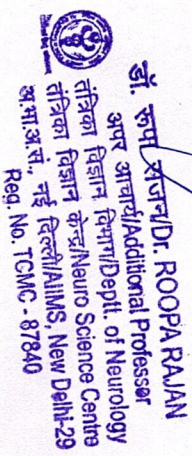 डॉ. रूपा राजन/Dr. ROOPA RAJAN
अपर आचार्य/Additional Professor
तंत्रिका विज्ञान विभाग/Deptt. of Neurology
तंत्रिका विज्ञान केन्द्र/Neuro Science Centre
अ.भा.आ.सं., नई दिल्ली/AIIMS, New Delhi-29
Reg. No. TCMC - 87840